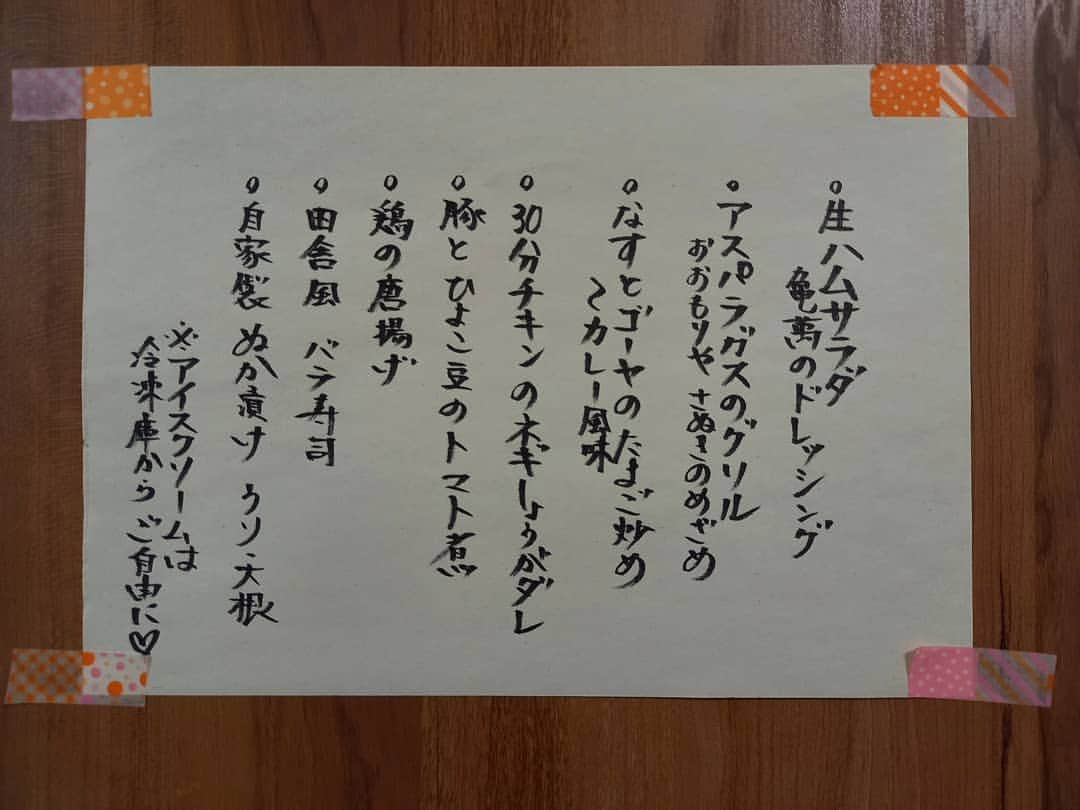 ○生ハムサラダ
亀萬のドレッシング
○アスパラグスのグリル
おおもりや さぬきのめざめ
○なすとゴーヤのたまご炒め
〜カレー風味
○30分チキンのネギしょうがダレ
○豚とひよこ豆のトマト煮
○鶏の唐揚げ
○田舎風 バラ寿司
○自家製 ぬか漬け うり・大根
※アイスクリームは
冷凍庫から ご自由に♡